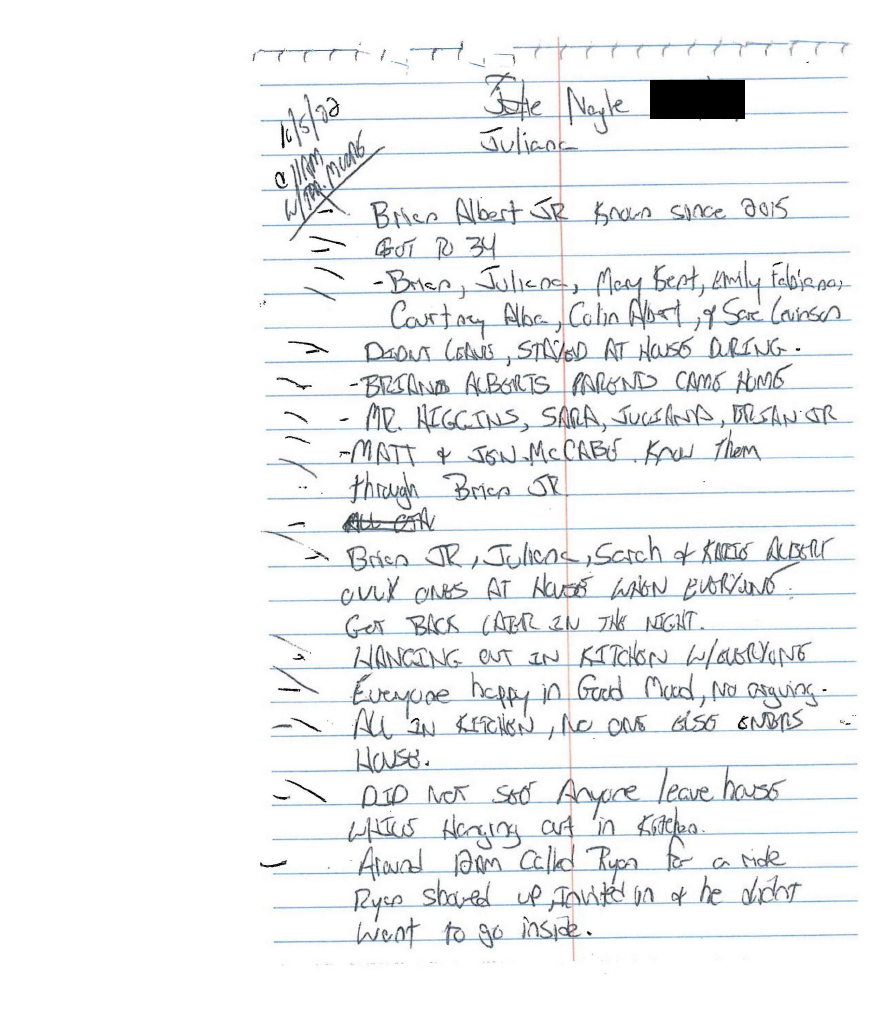 Julie Nagle
Juliana
10/5/22
@ 11AM
W/
Brian Albert JR Known since 2015
GOT TO 34
- Brian, Juliana, Mary Kent, Emily Fabiano,
Courtney Alba, Colin Albert, & Sara Levinson
DIDNT LEAVE, STAYED AT HOUSE DURING.
- BRIANS ALBERTS PARENTS CAME HOME
- MR. HIGGINS, SARA, JULIANA, BRIAN JR
- MATT & JEN McCABE. Know them
through Brian JR
Brian JR, Juliana, Sarah & KATIE ALBERT
ONLY ONES AT HOUSE WHEN EVERYONE
GET BACK LATER IN THE NIGHT.
HANGING OUT IN KITCHEN W/EVERYONE
Everyone happy in Good Mood, No arguing.
ALL IN KITCHEN, NO ONE ELSE ENTERS
HOUSE.
DID NOT SEE Anyone leave house
WHILE Hanging out in Kitchen.
Around 12AM Called Ryan for a ride
Ryan showed up, Invited in & he didnt
Want to go inside.